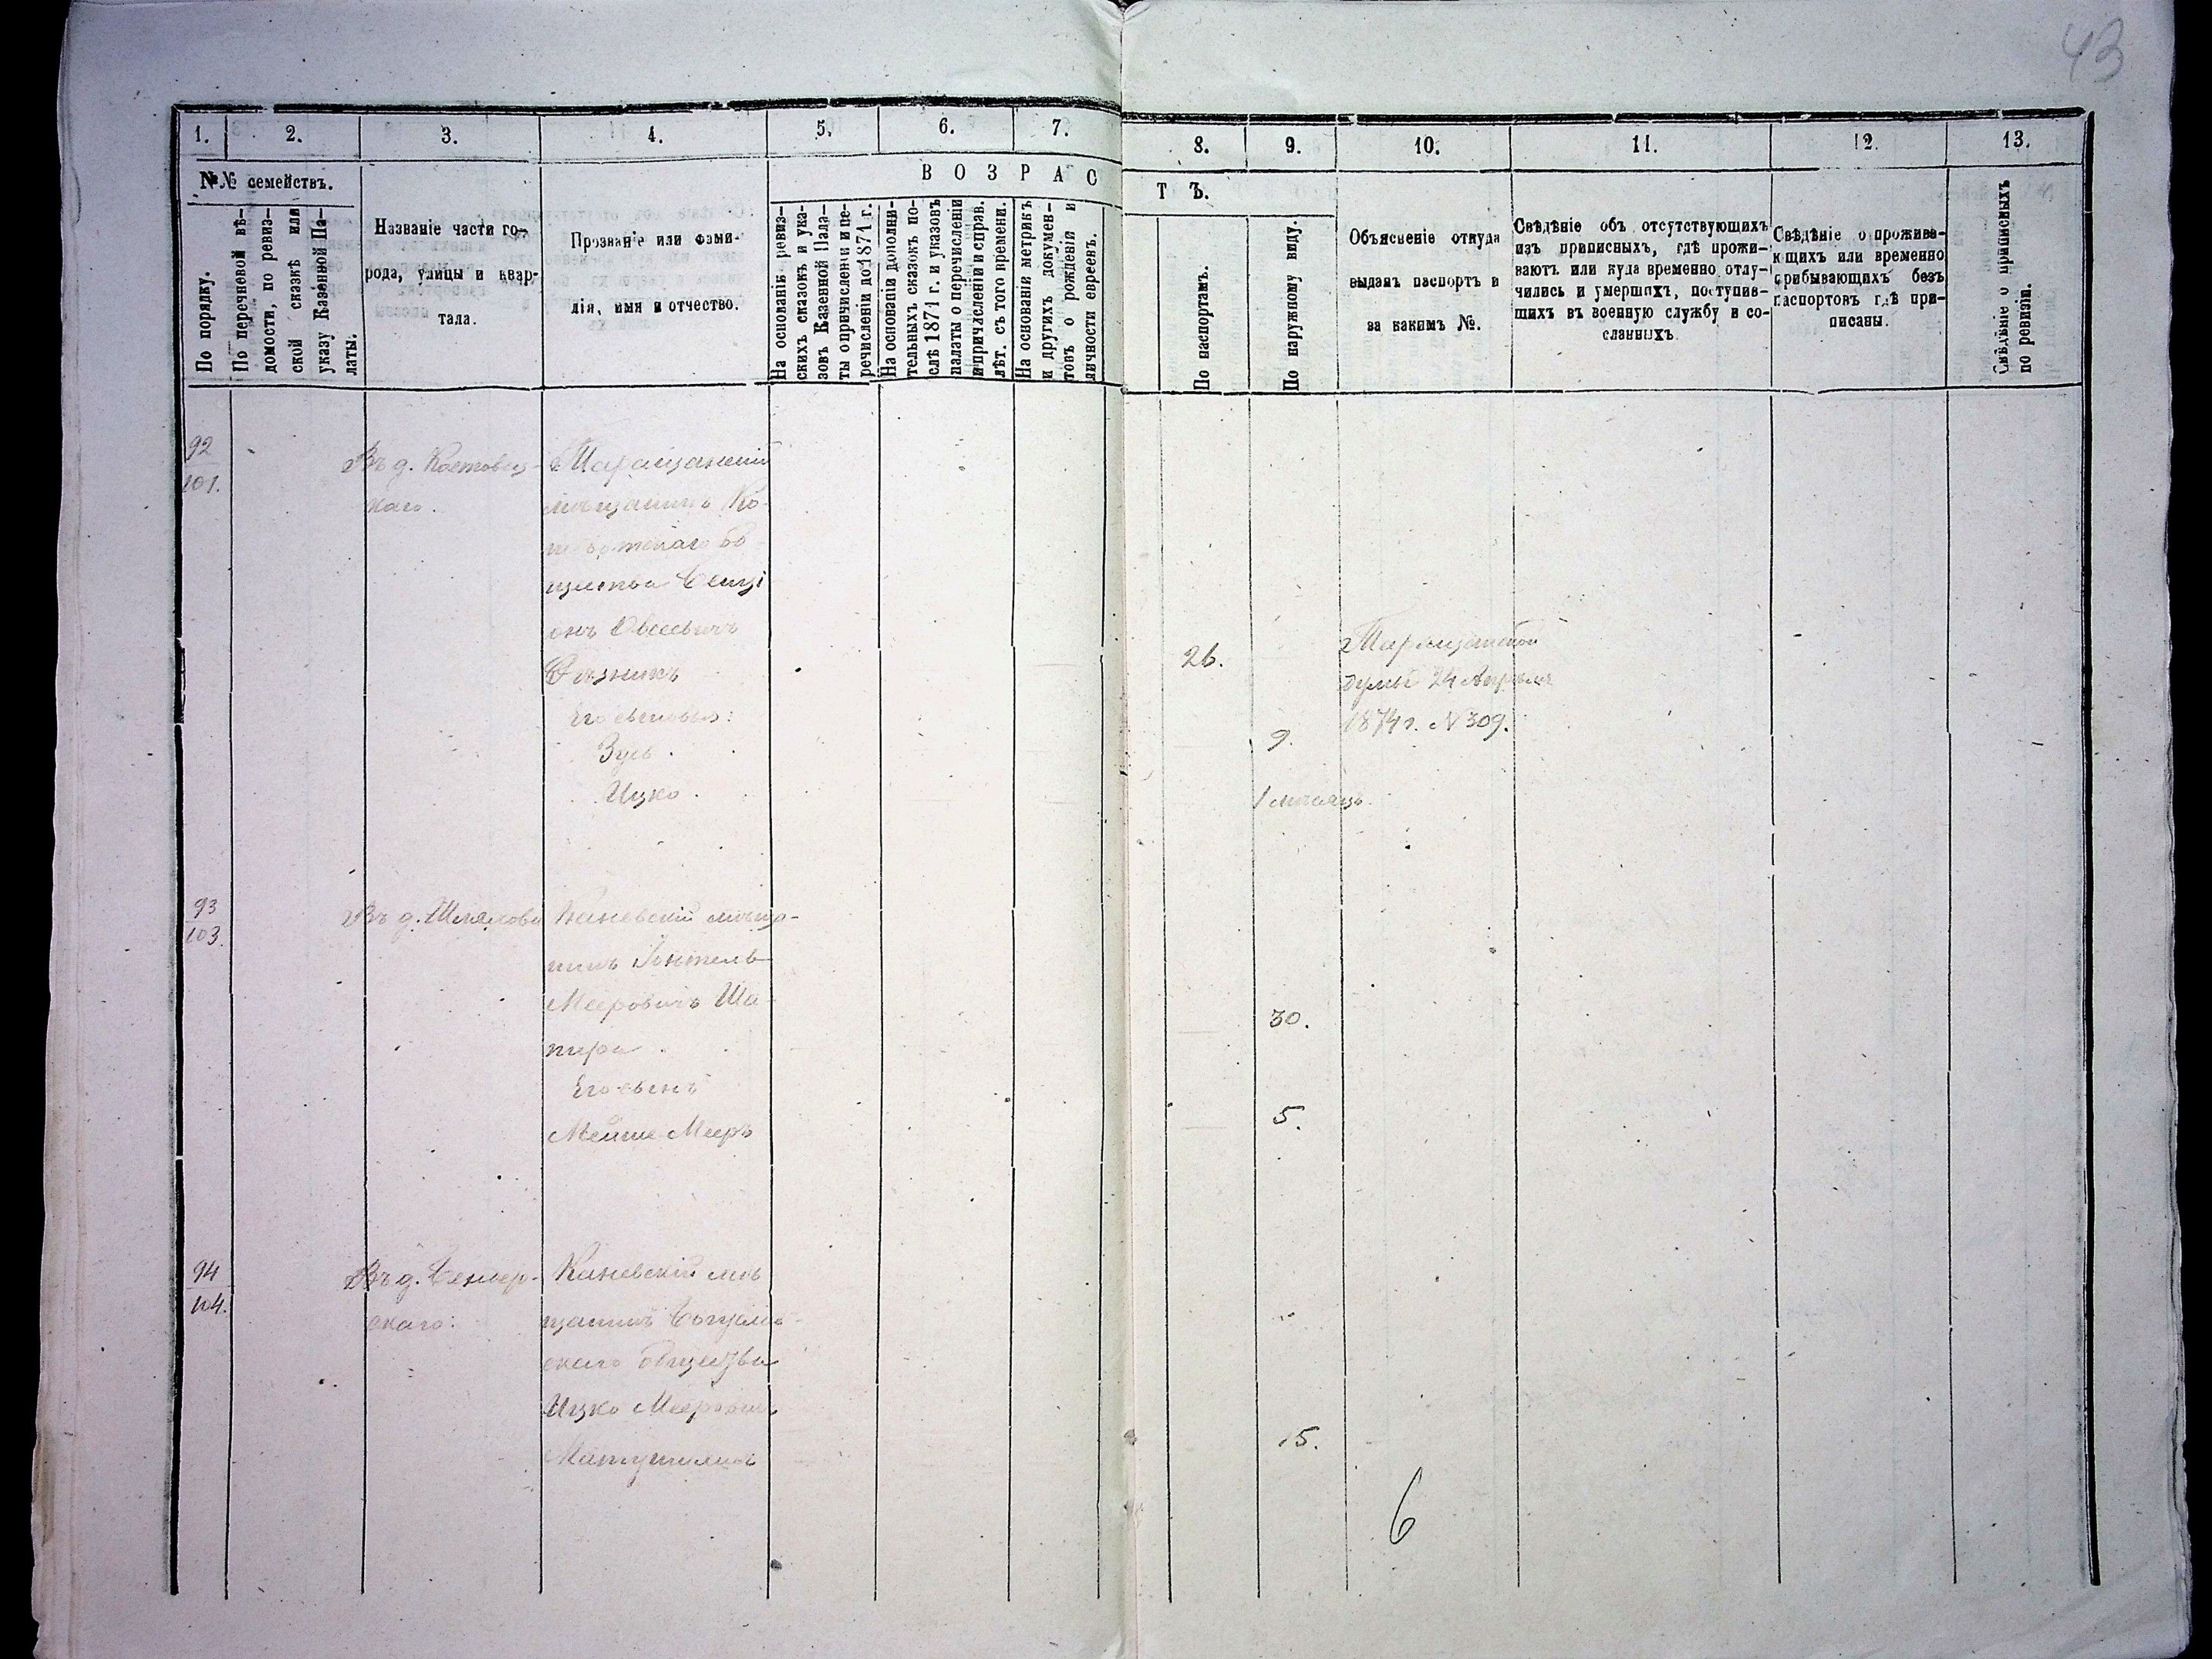 43
1. 2. 3. 4. 5. 6. 7. 8. 9. 10. 11. 12. 13.
№№ семействъ.
По порядку.
По перечневой вѣ-
домости, по ревиз-
ской сказкѣ или
указу Казенной Па-
латы.
Названіе части го-
рода, улицы и квар-
тала.
Прозваніе или фами-
лія, имя и отчество.
ВОЗРАСТЪ.
На основаніи ревиз-
скихъ сказокъ и ука-
зовъ Казенной Пала-
ты о причисленіи и пе-
речисленіи до 1871 г.
На основаніи дополни-
тельныхъ сказокъ по-
слѣ 1871 г. и указовъ
палаты о перечисленіи
и причисленіи и справ.
лѣт. съ того времени.
На основаніи метрикъ
и другихъ докумен-
товъ о рожденіи и
личности евреевъ.
По паспортамъ.
По наружному виду.
Объясненіе откуда
выданъ паспортъ и
за какимъ №.
Свѣдѣніе объ отсутствующихъ
изъ приписныхъ, гдѣ прожи-
ваютъ или куда временно отлу-
чились и умершихъ, поступив-
шихъ въ военную службу и со-
сланныхъ.
Свѣдѣніе о прожива-
ющихъ или временно
прибывающихъ безъ
паспортовъ гдѣ при-
писаны.
Свѣдѣніе о приписныхъ
по ревизіи.
92
101.
Въ д.
каго.
Таращанскій
мѣщанинъ
Овсеевичъ
Его сыновья:
Зусь
Ицко
26.
9.
1 мѣсяцъ.
Таращанской
думы 24 Апрѣля
1874 г. N 309.
93
103.
Въ д.
Каневскій мѣща-
нинъ
Мееровичъ Ша-
пиро
Его сынъ
Мееръ
30.
5.
94
104.
Въ д.
скаго.
Каневскій мѣ
щанинъ
скаго общества
Ицко Мееровичъ
15.
6